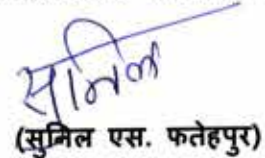 सुनिल
(सुनिल एस. फतेहपुर)